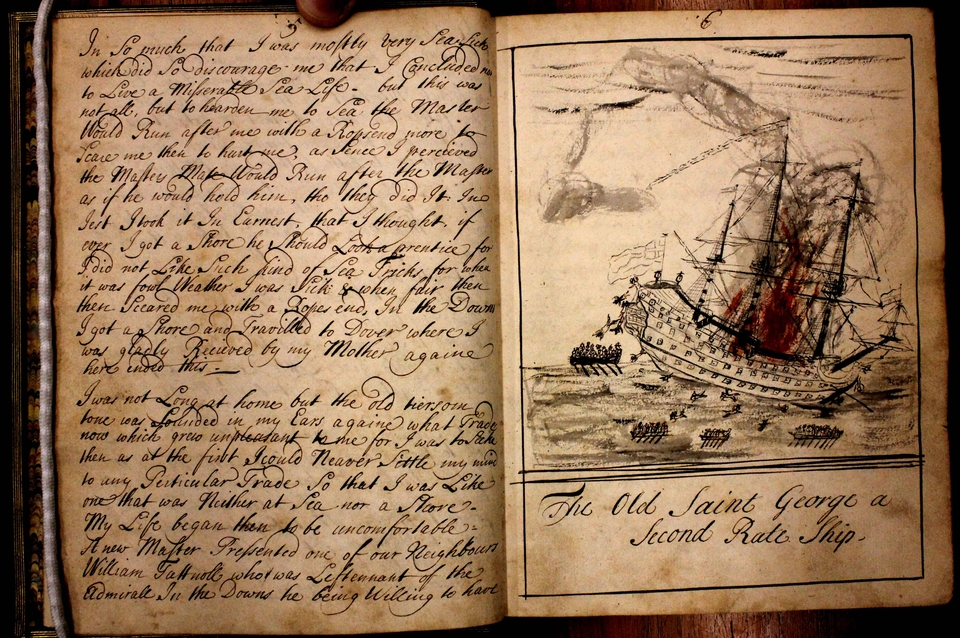 5
In So much that I was mostly very Sea Sick
which did So discourage me that I Concluded
to Live a Misserable Sea Life - but this was
not all, but to hearden me to Sea the Master
Would Run after me with a Ropsend more to
Scare me then to hurt me, as Sence I percieved
the Masters Mate Would Run after the Master
as if he would hold him, tho they did It In
Jest I took it In Earnest, that I thought, if
ever I got a Shore he Should Look a prentice for
I did not Like Such kind of Sea Tricks for when
it was fowl Weather I was Sick & when fair then
then Sceared me with a Ropes end, In the Downs
I got a Shore and Travilled to Dover where I
was gladly Recieved by my Mother againe
here ended this -
I was not Long at home but the old tiersom
tone was Sounded in my Ears againe what Trade
now which grew unpleasant to me for I was to Seek
then as at the first I could Neaver Settle my mind
to any Perticular Trade So that I was Like
one that was Neither at Sea nor a Shore -
My Life began then to be uncomfortable
A new Master Pressented one of our Neighbours
William Tattnoll who was Leftennant of the
Admirall In the Downs he being Willing to have
6
The Old Saint George a
Second Rate Ship -